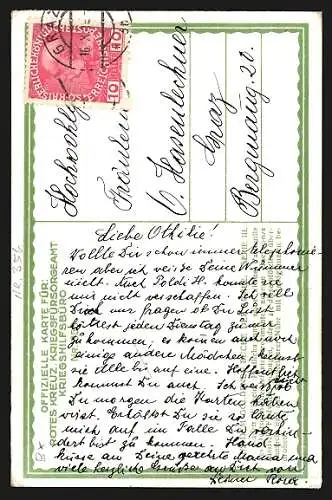 GRAZ
KAISERLICHE KÖNIGLICHE ÖSTERREICHISCHE POST
10 10
Hochwohlg.
Fräulein
O. Hasenlechner
Graz
Bergmanng. 20.
OFFIZIELLE KARTE FÜR:
ROTES KREUZ, KRIEGSFÜRSORGEAMT
KRIEGSHILFSBÜRO
Nr. 356
Liebe Othilie!
Wollte Dir schon immer telephonie-
ren aber ich weiss Deine Nummer
nicht. Auch Poldi H. konnte sie
mir nicht verschaffen. Ich soll
Dich nur fragen ob Du Lust
hättest jeden Dienstag zu mir
zu kommen; es kommen auch noch
einige andere Mädchen; kennst
sie alle bis auf eine. Hoffentlich
kommst Du auch. Ich weiss ob
Du morgen die Karten haben
wirst. Erhältst Du sie so läute
mich auf im Falle Du verhin-
dert bist zu kommen. Hand
küsse an Deine geehrte Mama und
viele herzliche Grüsse an Dich von
Deiner